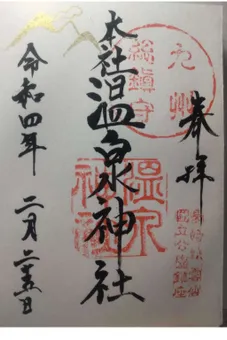 奉拝
九州
総鎮守
本社温泉神社
温泉
神社
長崎県雲仙
国立公園鎮座
令和四年 二月二十五日